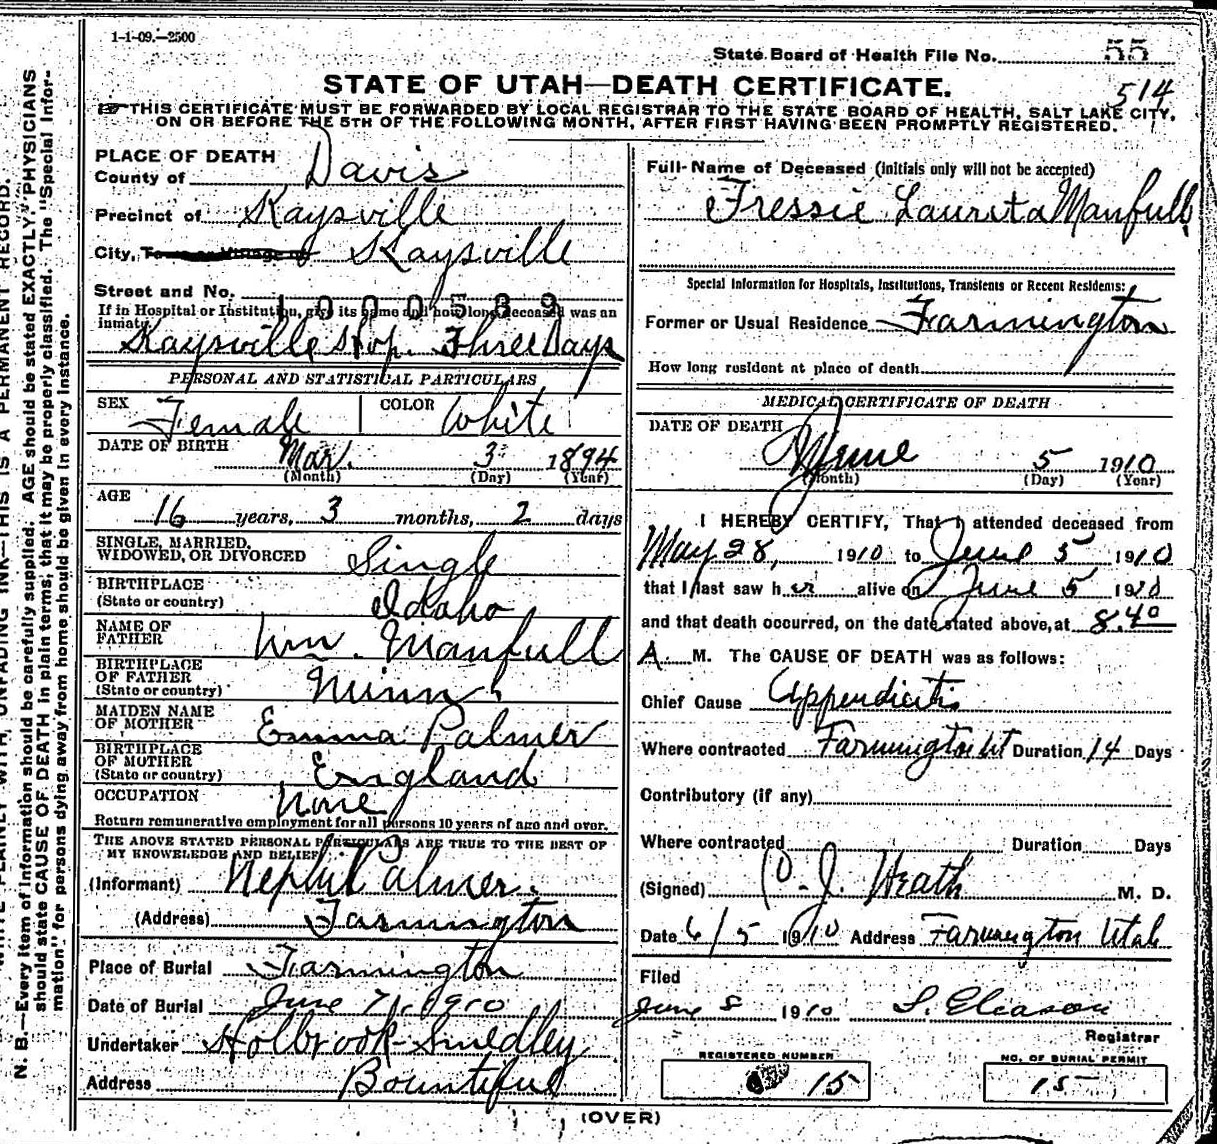 1-1-09.—2500
State Board of Health File No. 55
514
STATE OF UTAH—DEATH CERTIFICATE.
☞THIS CERTIFICATE MUST BE FORWARDED BY LOCAL REGISTRAR TO THE STATE BOARD OF HEALTH, SALT LAKE CITY,
ON OR BEFORE THE 5TH OF THE FOLLOWING MONTH, AFTER FIRST HAVING BEEN PROMPTLY REGISTERED.
PLACE OF DEATH
County of Davis
Precinct of Kaysville
City, Town or Village of Kaysville
Street and No.
1000589
If in Hospital or Institution, give its name and how long deceased was an
inmate.
Kaysville Hop. Three Days
PERSONAL AND STATISTICAL PARTICULARS
SEX Female COLOR White
DATE OF BIRTH Mar. 3 1894
(Month) (Day) (Year)
AGE
16 years, 3 months, 2 days
SINGLE, MARRIED,
WIDOWED, OR DIVORCED Single
BIRTHPLACE
(State or country) Idaho
NAME OF
FATHER Wm. Manfull
BIRTHPLACE
OF FATHER
(State or country) Minn
MAIDEN NAME
OF MOTHER Emma Palmer
BIRTHPLACE
OF MOTHER
(State or country) England
OCCUPATION None
Return remunerative employment for all persons 10 years of age and over.
THE ABOVE STATED PERSONAL PARTICULARS ARE TRUE TO THE BEST OF
MY KNOWLEDGE AND BELIEF
(Informant) Nephi Palmer.
(Address) Farmington
Place of Burial Farmington
Date of Burial June 7, 1910
Undertaker Holbrook-Smedley
Address Bountiful
Full Name of Deceased (initials only will not be accepted)
Fressie Laurita Manfull
Special Information for Hospitals, Institutions, Transients or Recent Residents:
Former or Usual Residence Farmington
How long resident at place of death
MEDICAL CERTIFICATE OF DEATH
DATE OF DEATH
June 5 1910
(Month) (Day) (Year)
I HEREBY CERTIFY, That I attended deceased from
May 28, 1910 to June 5 1910
that I last saw her alive on June 5 1910
and that death occurred, on the date stated above, at 8.40
A. M. The CAUSE OF DEATH was as follows:
Chief Cause Appendicitis
Where contracted Farmington Ut Duration 14 Days
Contributory (if any)
Where contracted Duration Days
(Signed) O. J. Heath M. D.
Date 6/5 1910 Address Farmington Utah
Filed
June 8 1910 S. Gleason
Registrar
REGISTERED NUMBER
15
NO. OF BURIAL PERMIT
15
(OVER)
WRITE PLAINLY WITH UNFADING INK—THIS IS A PERMANENT RECORD.
N. B.—Every item of information should be carefully supplied. AGE should be stated EXACTLY. PHYSICIANS
should state CAUSE OF DEATH in plain terms, that it may be properly classified. The "Special Infor-
mation" for persons dying away from home should be given in every instance.